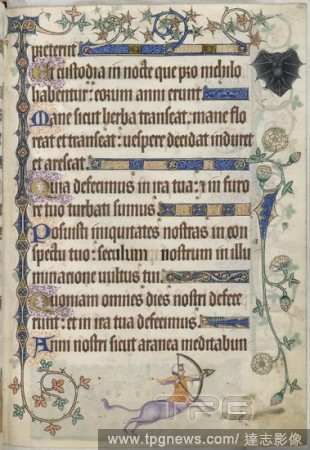 preterit
Et custodia in nocte que pro nichilo
habentur: eorum anni erunt
Mane sicut herba transeat, mane flo
reat et transeat: uespere decidat induret
et arescat.
Quia defecimus in ira tua: et in furo
re tuo turbati sumus.
Posuisti iniquitates nostras in con
spectu tuo: seculum nostrum in illu
minacione uultus tui.
Quoniam omnes dies nostri defece
runt: et in ira tua defecimus.
Anni nostri sicut aranea meditabun
TPG
www.tpgnews.com/達志影像